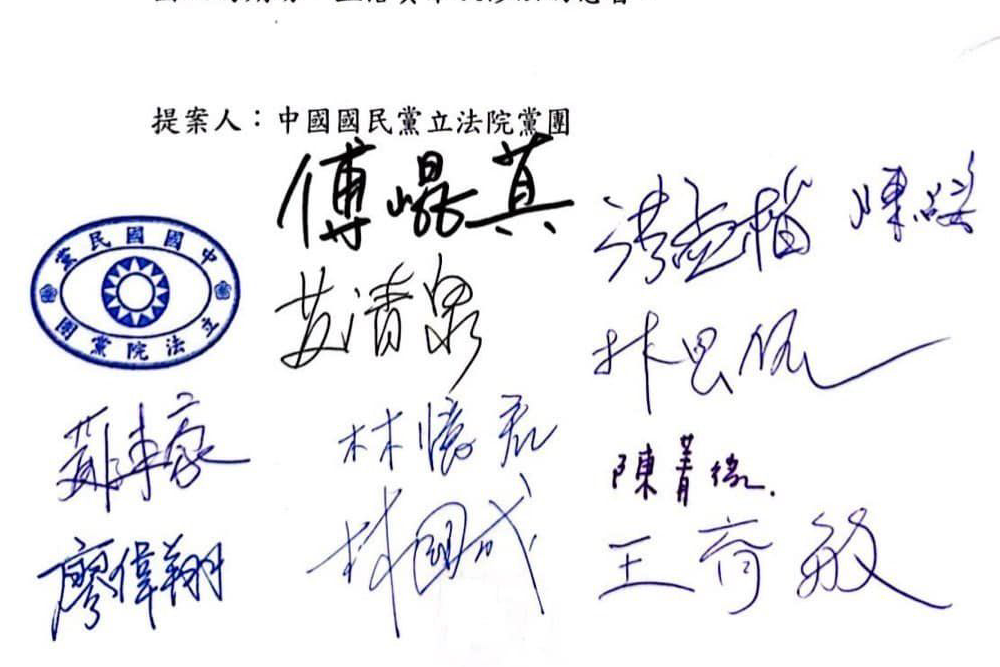 提案人：中國國民黨立法院黨團
傅崐萁 洪孟楷 陳昭姿
中國國民黨
立法院黨團
蘇清泉 林思銘
林憶君 陳菁徽
廖偉翔 林國成 王育敏